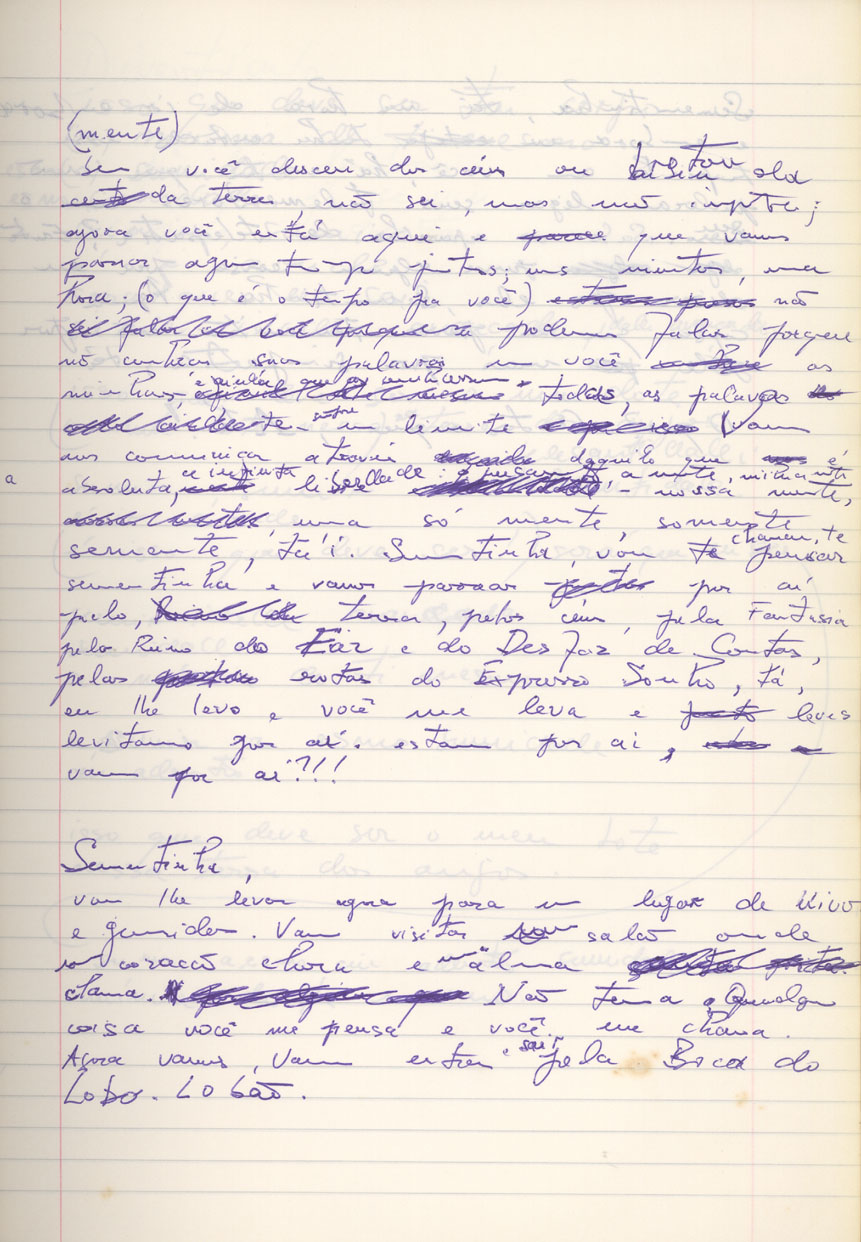 (mente)
Se você desceu dos céus ou brotou da
da terra, não sei, mas não importa;
agora você está aqui e que vamos
passar algum tempo juntos; uns minutos, uma
hora; (o que é o tempo pra você) não
podemos falar porque
não conheço suas palavras nem você as
minhas e ainda que as conhecesse todas, as palavras
sofre um limite Vamos
nos comunicar através daquilo que é
absoluta, a infinita liberdade: o pensamento, a mente, minha mente
a
- nossa mente,
uma só mente, somente
semente, tá! Sementinha, vou te chamar, te pensar
sementinha e vamos passear por aí
pelo, terra, pelos céus, pela Fantasia
pelos Reino do Faz e do Desfaz de Contas,
pelas rotas do Expresso Sonho, tá,
eu lhe levo e você me leva e leves
levitamos por aí. estamos por aí,
vamos por aí?!!!
Sementinha,
vou lhe levar agora para um lugar de uivo
e gemidos. Vamos visitar um salão onde
um coração chora e uma alma
clama. Não tema. Qualquer
coisa você me pensa e você me chama.
Agora vamos, vamos entrar e sair pela Boca do
Lobo. Lobão.